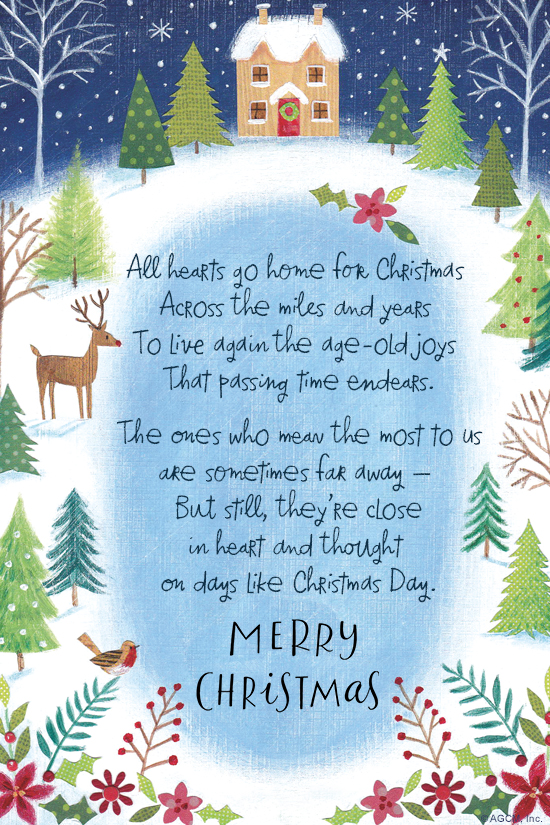 All hearts go home for Christmas
Across the miles and years
To live again the age-old joys
That passing time endears.
The ones who mean the most to us
are sometimes far away –
But still, they're close
in heart and thought
on days like Christmas Day.
MERRY
CHRISTMAS
© AGCM, Inc.